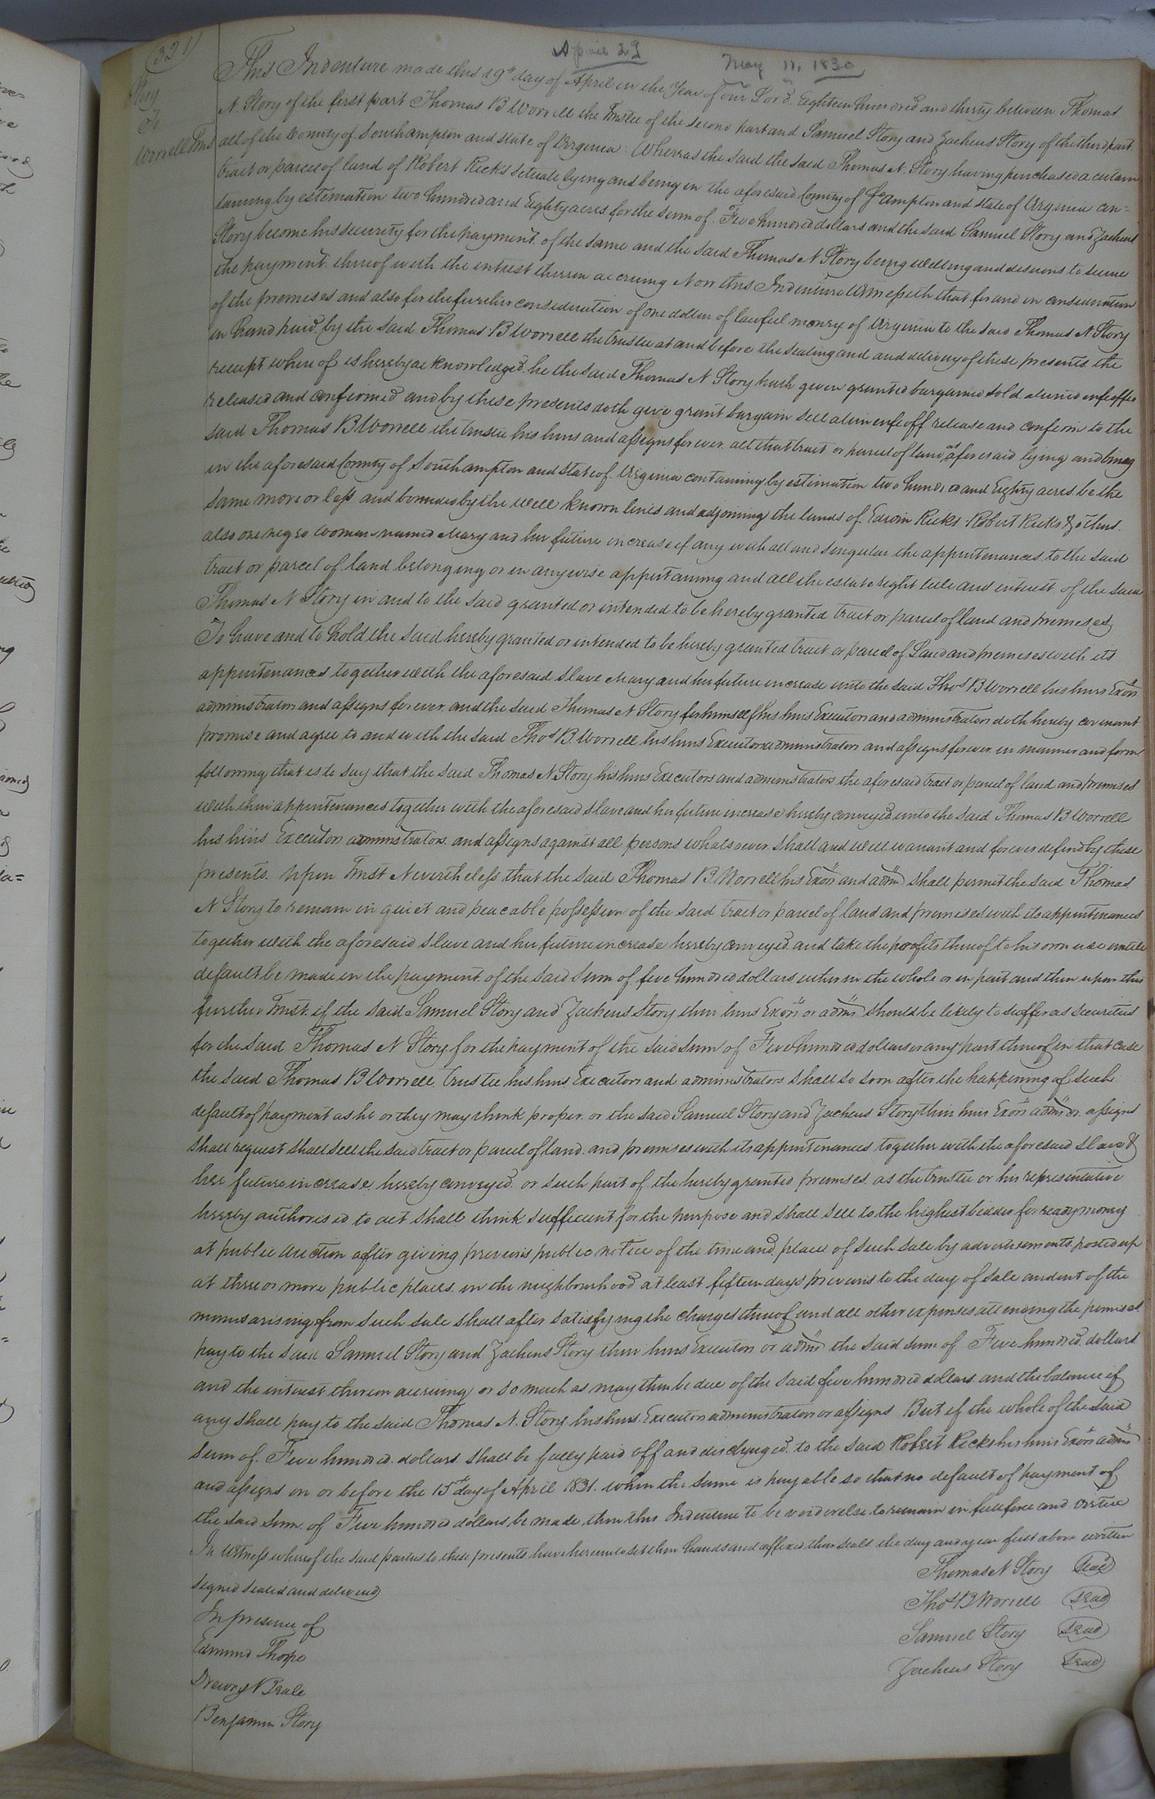 (321)
April 29 May 11, 1830
Story
To
Worrell Trust
This Indenture made this 29th day of April in the Year of our Lord Eighteen hundred and thirty between Thomas
N. Story of the first part Thomas B Worrell the Trustee of the second part and Samuel Story and Zacheus Story of the third part
all of the County of Southampton and state of Virginia. Whereas the said the said Thomas N. Story having purchased a certain
tract or parcel of land of Robert Ricks situate lying and being in the aforesaid County of Hampton and state of Virginia con=
taining by estimation two hundred and Eighty acres for the sum of Five hundred dollars and the said Samuel Story and Zacheus
Story become his security for the payment of the same and the said Thomas N Story being willing and desirous to secure
the payment thereof with the interest thereon accruing Now this Indenture Witnesseth that for and in consideration
of the premises and also for the further consideration of one dollar of lawful money of Virginia to the said Thomas N Story
in hand paid by the said Thomas B Worrell the trustee at and before the sealing and and delivery of these presents the
receipt where of is hereby acknowledged he the said Thomas N Story hath given granted bargained sold aliened enfeoffed
released and confirmed and by these presents doth give grant bargain sell alien enfeoff release and confirm to the
said Thomas B Worrell the trustee his heirs and assigns forever all that tract or parcel of land as aforesaid lying and being
in the aforesaid County of Southampton and State of Virginia containing by estimation two hundred and Eighty acres be the
same more or less and bounded by the well known lines and adjoining the lands of Edwin Ricks Robert Ricks & others
also one negro woman named Mary and her future increase if any with all and singular the appurtenances to the said
tract or parcel of land belonging or in anywise appertaining and all the estate right title and interest of the said
Thomas N Story in and to the said granted or intended to be hereby granted tract or parcel of land and premises
To have and to hold the said hereby granted or intended to be hereby granted tract or parcel of Land and premises with its
appurtenances together with the aforesaid slave Mary and her future increase unto the said Thos B Worrell his heirs Exors
administrators and assigns forever and the said Thomas N Story for himself his heirs Executors and administrators doth hereby covenant
promise and agree to and with the said Thos B. Worrell his heirs Executors administrators and assigns forever in manner and form
following that is to say that the said Thomas N Story his heirs Executors and administrators the aforesaid tract or parcel of land and premises
with their appurtenances together with the aforesaid slave and her future increase hereby conveyed unto the said Thomas B Worrell
his heirs Executors administrators and assigns against all persons whatsoever shall and will warrant and forever defend by these
presents. Upon Trust Nevertheless that the said Thomas B. Worrell his Exors and adms shall permit the said Thomas
N Story to remain in quiet and peacable possession of the said tract or parcel of land and premises with its appurtenances
together with the aforesaid slave and her future increase hereby conveyed and take the profits thereof to his own use untill
default be made in the payment of the said sum of five hundred dollars either in the whole or in part and then upon this
further Trust if the said Samuel Story and Zacheus Story their heirs Exors or adms should be likely to suffer as securities
for the said Thomas N Story for the payment of the said sum of Five hundred dollars or any part thereof in that case
the said Thomas B Worrell trustee his heirs Executors and administrators shall so soon after the happening of such
default of payment as he or they may think proper or the said Samuel Story and Zacheus Story their heirs Exors adms or assigns
shall request shall sell the said tract or parcel of land and premises with its appurtenances together with the aforesaid slave &
her future increase hereby conveyed or such part of the hereby granted premises as the trustee or his representative
hereby authorised to act shall think sufficient for the purpose and shall sell to the highest bidder for ready money
at public auction after giving previous public notice of the time and place of such sale by advertisements posted up
at three or more public places in the neighbourhood at least fifteen days previous to the day of sale and out of the
monies arising from such sale shall after satisfying the charges thereof and all other expenses attending the premises
pay to the said Samuel Story and Zacheus Story their heirs Executors or adms the said sum of Five hundred dollars
and the interest thereon accruing or so much as may then be due of the said five hundred dollars and the balance if
any shall pay to the said Thomas N. Story his heirs Executors administrators or assigns But if the whole of the said
sum of Five hundred dollars shall be fully paid off and discharged to the said Robert Ricks his heirs Exors adms
and assigns on or before the 15th day of April 1831. when the same is payable so that no default of payment of
the said sum of Five hundred dollars be made then this Indenture to be void or else to remain in full force and virtue
In witness whereof the said parties to these presents have hereunto set their hands and affixed their seals the day and year first above written
Signed sealed and delivered
In presence of
Edmund Thorpe
Drewry N Beale
Benjamin Story
Thomas N Story Seal
Thos B Worrell Seal
Samuel Story Seal
Zacheus Story Seal